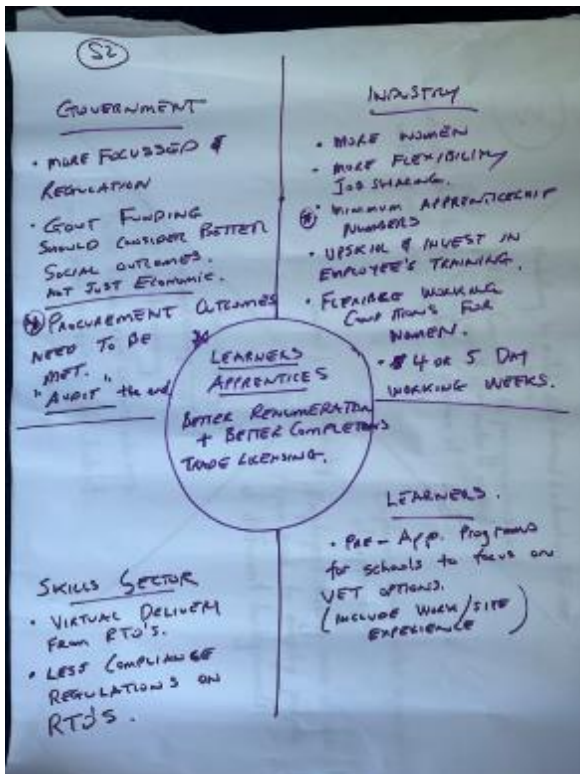 S2
GOVERNMENT
• MORE FOCUSSED &
REGULATION
• GOVT FUNDING
SHOULD CONSIDER BETTER
SOCIAL OUTCOMES.
NOT JUST ECONOMIC.
* PROCUREMENT OUTCOMES
NEED TO BE
MET.
"AUDIT" the end
INDUSTRY
• MORE WOMEN
• MORE FLEXIBILITY
JOB SHARING.
* • MINIMUM APPRENTICESHIP
NUMBERS
• UPSKILL & INVEST IN
EMPLOYEE'S TRAINING.
• FLEXIBLE WORKING
CONDITIONS FOR
WOMEN.
• 4 OR 5 DAY
WORKING WEEKS.
LEARNERS
APPRENTICES
BETTER RENUMERATION
+ BETTER COMPLETIONS
TRADE LICENSING.
SKILLS SECTOR
• VIRTUAL DELIVERY
FROM RTO'S.
• LESS COMPLIANCE
REGULATIONS ON
RTO'S.
LEARNERS.
• PRE-App. Programs
for schools to focus on
VET OPTIONS.
(INCLUDE WORK/SITE
EXPERIENCE)